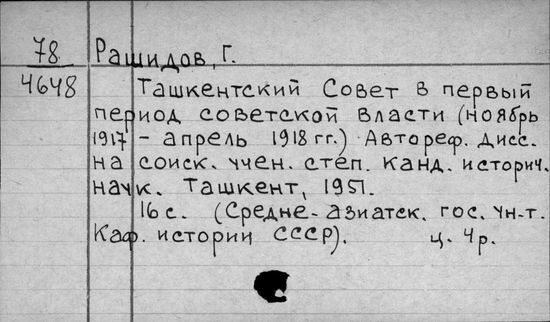 78 Рашидов, Г.
4648 Ташкентский Совет в первый
период советской власти (ноябрь
1917 - апрель 1918 гг.) Автореф. дисс.
на соиск. учен. степ. канд. историч.
наук. Ташкент, 1951.
16 с. (Средне-азиатск. гос. ун-т.
Каф. истории СССР). ц. 4 р.